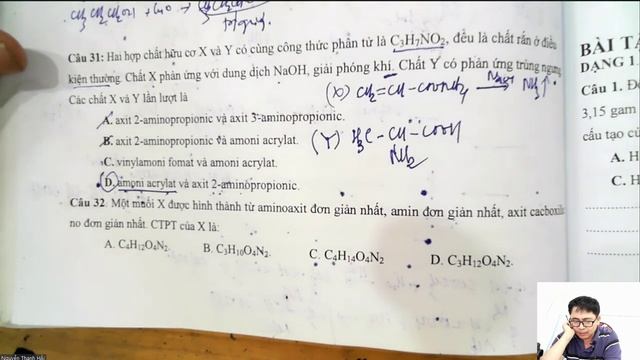 CH3CH2CH2OH + CuO →
Câu 31: Hai hợp chất hữu cơ X và Y có cùng công thức phân tử là C3H7NO2, đều là chất rắn ở điều
kiện thường. Chất X phản ứng với dung dịch NaOH, giải phóng khí. Chất Y có phản ứng trùng ngưng
Các chất X và Y lần lượt là
(X) CH2=CH-COONH4 NaOH→ NH3↑
A. axit 2-aminopropionic và axit 3-aminopropionic.
B. axit 2-aminopropionic và amoni acrylat.
(Y) H3C-CH-COOH
NH2
C. vinylamoni fomat và amoni acrylat.
D. amoni acrylat và axit 2-aminopropionic.
Câu 32: Một muối X được hình thành từ aminoaxit đơn giản nhất, amin đơn giản nhất, axit cacboxilic
no đơn giản nhất. CTPT của X là:
A. C4H12O4N2.
B. C3H10O4N2.
C. C4H14O4N2
D. C3H12O4N2.
BÀI TẬ
DẠNG 1.
Câu 1.
3,15 gam
cấu tạo củ
A. H
C. H
Nguyễn Thanh Hải